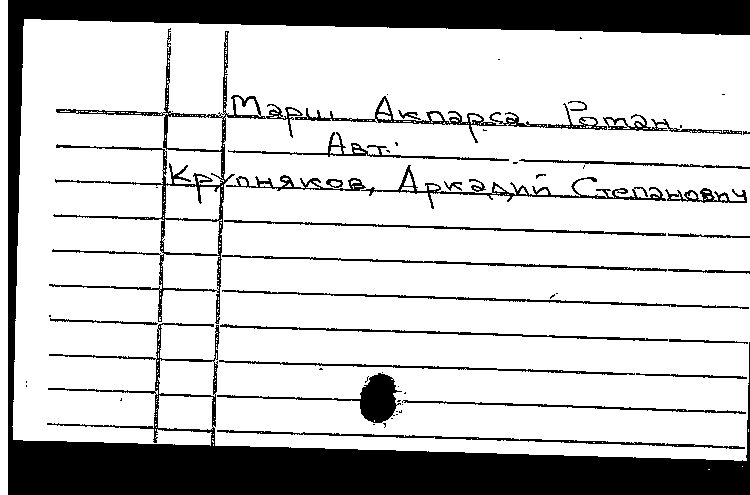 Марш Акпарса. Роман.
Авт.:
Крупняков, Аркадий Степанович